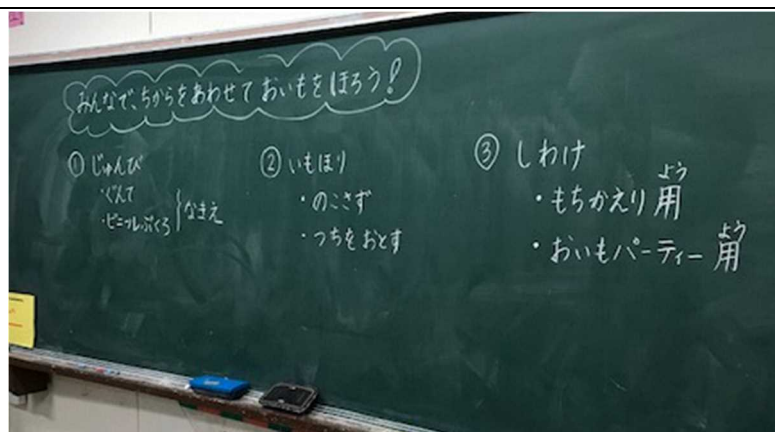 みんなで、ちからをあわせて おいもをほろう!
① じゅんび
・ぐんて
・ビニールぶくろ } なまえ
② いもほり
・のこさず
・つちをおとす
③ しわけ
・もちかえり用
よう
・おいもパーティー用
よう